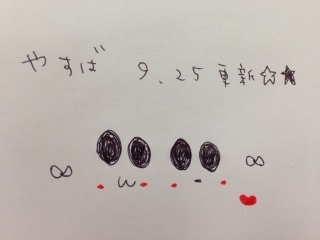 やすば 9.25更新☆★
∞ ω ∞